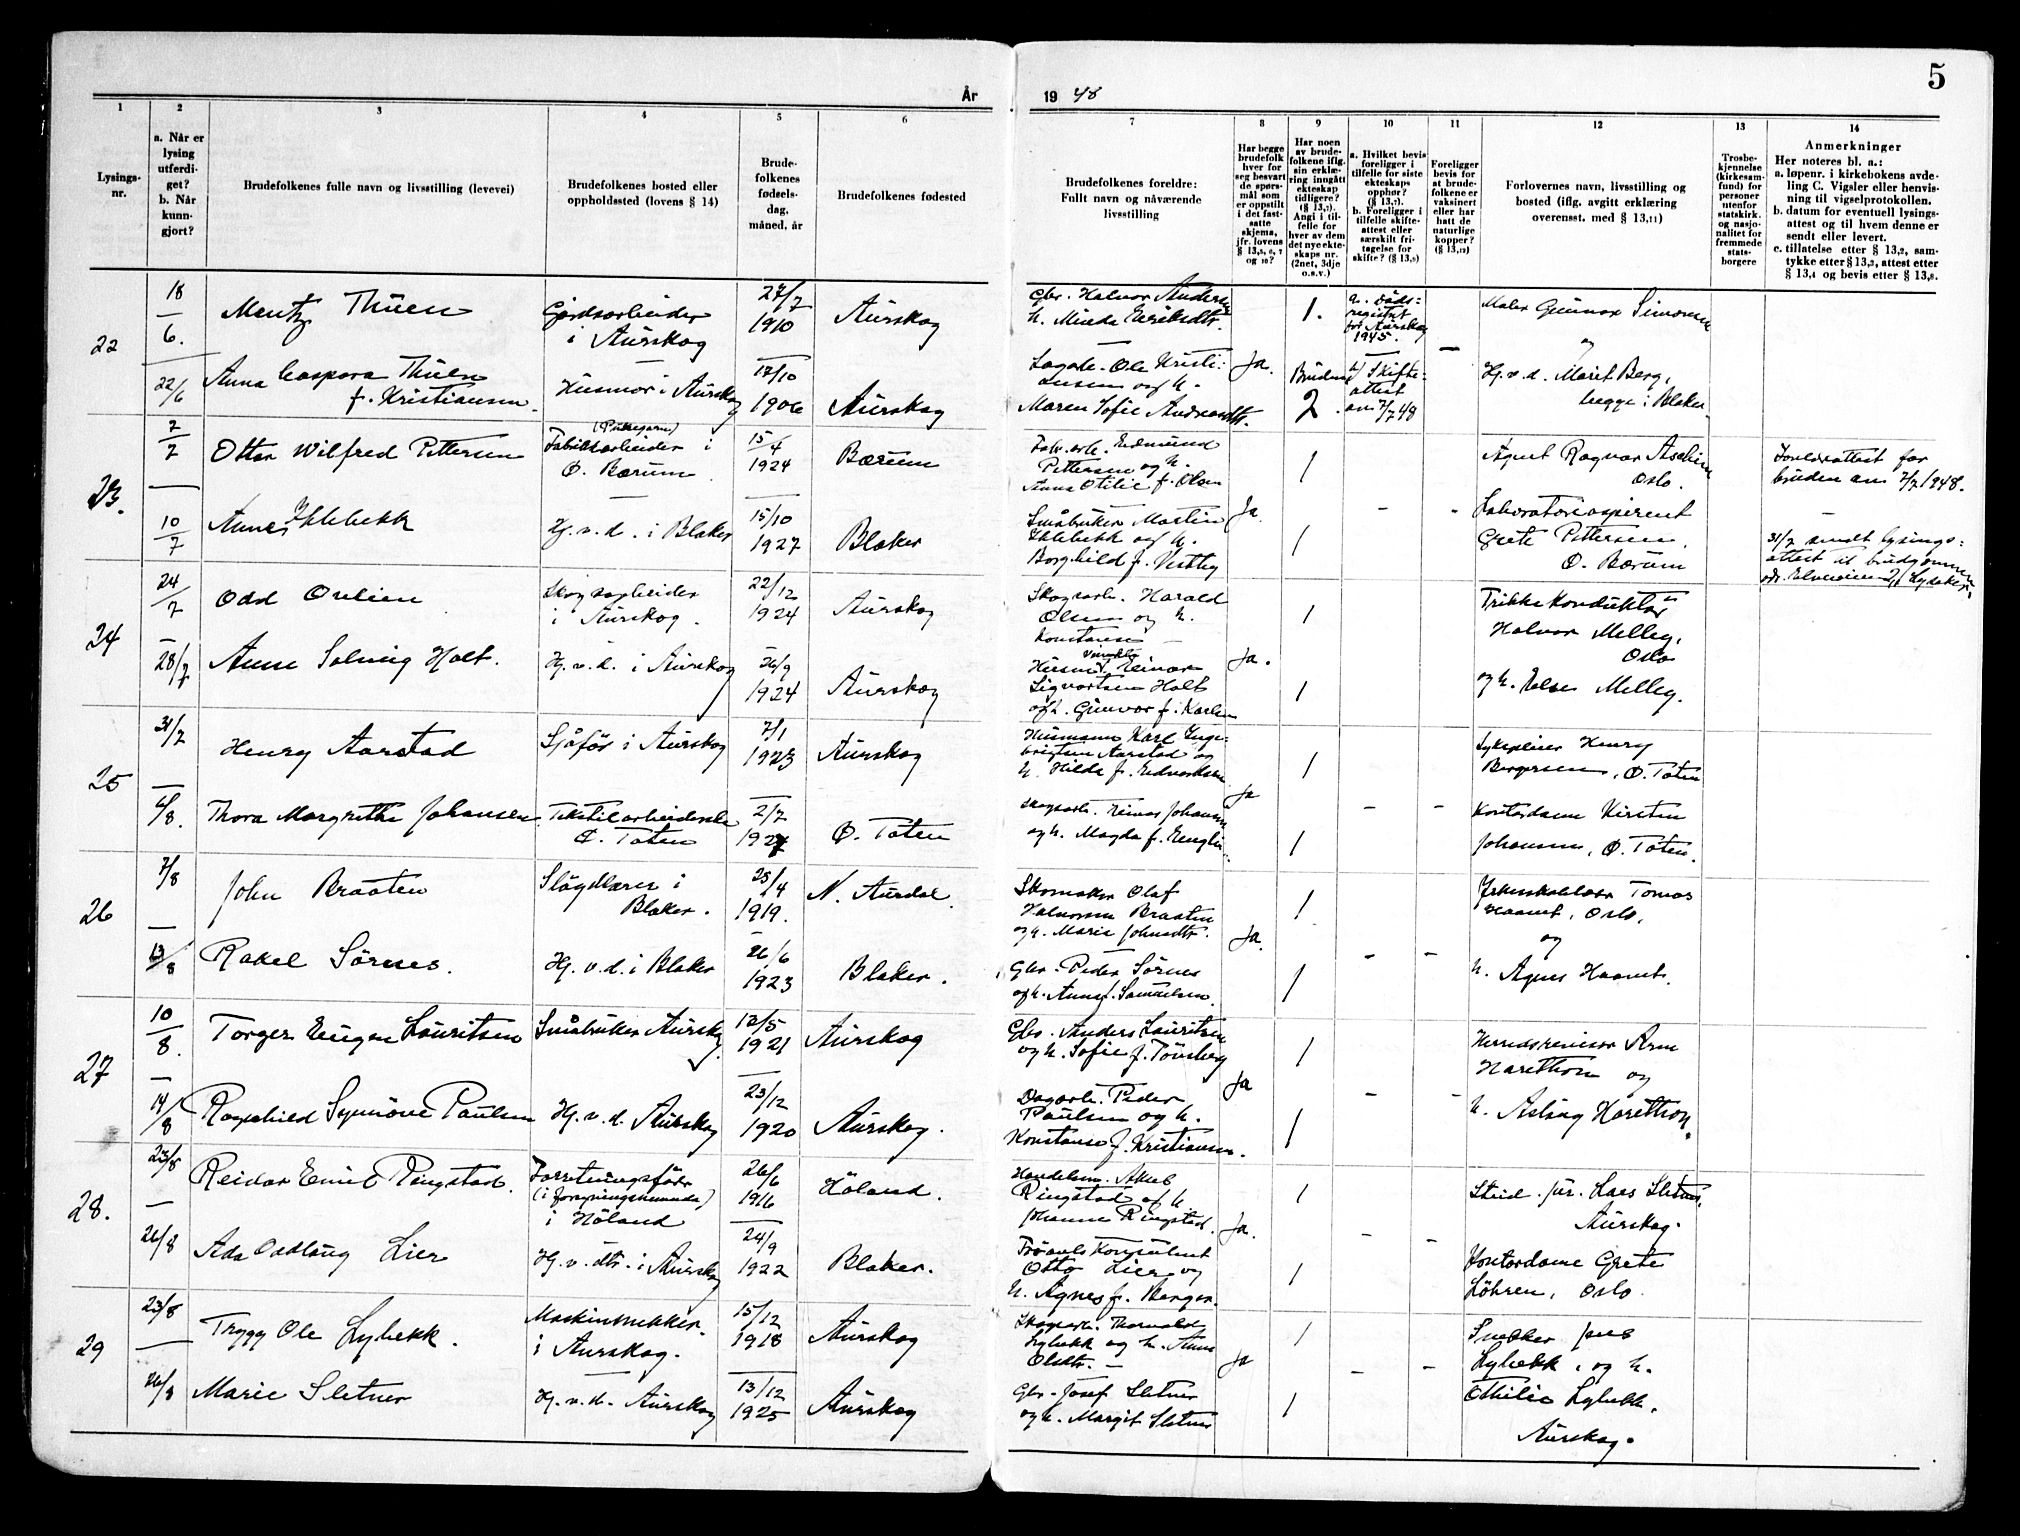 5
År
19 48
1
2
3
4
5
6
7
8
9
10
11
12
13
14
Lysings-
nr.
a. Når er
lysing
utferdi-
get?
b. Når
kunn-
gjort?
Brudefolkenes fulle navn og livsstilling (levevei)
Brudefolkenes bosted eller
oppholdssted (lovens § 14)
Brude-
folkenes
fødsels-
dag,
måned, år
Brudefolkenes fødested
Brudefolkenes foreldre:
Fullt navn og nåværende
livsstilling
Har begge
brudefolk
hver for
seg besvart
de spørs-
mål som
er oppstilt
i det fast-
satte
skjema,
jfr. lovens
§ 13,5, 6, 7
og 10?
Har noen
av brude-
folkene iflg.
sin erklæ-
ring inngått
ekteskap
tidligere?
(§ 13,7).
Angi i til-
felle for
hver av dem
det nye ekte-
skaps nr.
(2net, 3dje
o.s.v.)
a. Hvilket bevis
foreligger i
tilfelle for siste
ekteskaps
opphør?
(§ 13,7).
b. Foreligger i
tilfelle skifte-
attest eller
særskilt fri-
tagelse for
skifte? (§ 13,9)
Foreligger
bevis for
at brude-
folkene er
vaksinert
eller har
hatt de
naturlige
kopper?
(§ 13,12)
Forlovernes navn, livsstilling og
bosted (iflg. avgitt erklæring
overensst. med § 13,11)
Trosbe-
kjennelse
(kirkesam-
fund) for
personer
utenfor
statskirk.
og nasjo-
nalitet for
fremmede
stats-
borgere
Anmerkninger
Her noteres bl. a.:
a. løpenr. i kirkebokens avde-
ling C. Vigsler eller henvis-
ning til vigselprotokollen.
b. datum for eventuell lysings-
attest og til hvem denne er
sendt eller levert.
c. tillatelse etter § 13,2, sam-
tykke etter § 13,3, attest etter
§ 13,4 og bevis etter § 13,8.
22
18/6.
Mentz Thuen
Gårdsarbeider
i Aurskog
27/7
1910
Aurskog
Gbr. Halvor Anders
h. Minda
1.
a. Døds-
registret
for Aurskog
1945.
Maler Gunnar Simonsen
og
22/6
Anna Caspara Thuen
f. Kristiansen.
Husmor i Aurskog
17/10
1906
Aurskog
Ole Kristi-
ansen og h.
Maren Sofie Andreasdtr.
Ja.
Bruden
2.
b) Skifte-
attest
av 7/7 48
—
Hj.v.d. Marit Berg,
begge i Blaker
23.
7/7
Ottar Wilfred Pettersen
Fabrikkarbeider i
Ø. Bærum
15/4
1924
Bærum
Fabr.arb. Edmund
Pettersen og h.
Anna Otilie f. Olsen
1
Agent Ragnar
Oslo.
Foreldreattest for
bruden av 7/7 1948.
10/7
Anne Ihlebekk
Hj.v.d. i Blaker
15/10
1927
Blaker
Småbruker Martin
Ihlebekk og h.
Borghild f. Vestby
Ja.
1
-
-
Laboratorieaspirent
Grete Pettersen,
Ø. Bærum
31/7 sendt lysings-
attest til brudgommen
24
24/7
Odd Ovlien
Skogsarbeider
i Aurskog.
22/12
1924
Aurskog
Skogsarb. Harald
Olsen og h.
Konstanse
1
Trikkekonduktør
Halvor Melleg,
Oslo
28/7
Anne Solveig Holt.
Hj.v.d. i Aurskog
26/9
1924
Aurskog
Einar
Sigvartsen Holt
og h. Gunvor f. Karlsen
Ja.
1
og h. Else Melleg.
25
31/7
Henry Aarstad
Sjåfør i Aurskog
7/1
1923
Aurskog
Husmann Karl Inge-
brigtsen Aarstad og
h. Hilda f. Edvardsen
1
Henry
Bergersen, Ø. Toten
6/8.
Thora Margrethe Johansen.
Tekstilarbeiderske
Ø. Toten
2/7
1927
Ø. Toten
Skogsarb. Einar Johansen
og h. Magda f. Englien
Ja
1
-
-
Kontordame Kirsten
Johansen, Ø. Toten.
26
7/8
John Braaten
Sløydlærer i
Blaker.
25/4
1919.
N. Aurdal.
Skomaker Olaf
Halvorsen Braaten
og h. Marie Johnsdtr.
1
Yrkesskolelærer Tomas
Haavet, Oslo,
og
13/8
Rakel Sørnes.
Hj.v.d. i Blaker
26/6
1923
Blaker.
Gbr. Peder Sørnes
og h. Anna f. Samuelsen.
Ja.
1
-
-
h. Agnes Haavet.
27
10/8.
Torger Eugen Lauritsen
Småbruker Aurskog
12/5
1921
Aurskog
Gbr. Anders Lauritsen
og h. Sofie f. Tønsberg
1
Herredsrevisor Arne
Harethon og
14/8
Ragnhild Synnøve Paulsen
Hj.v.d. Aurskog
23/12
1920
Aurskog.
Dagarb. Peder
Paulsen og h.
Konstanse f. Kristiansen.
Ja
1
-
-
h. Aslaug Harethon.
28.
23/8
Reidar Emil Ringstad.
Forretningsfører
(i forsyningsnemnda)
i Høland
26/6
1916
Høland.
Handelsm.
Ringstad og h.
Johanne Ringstad.
1
Stud. jur. Lars Sletner,
Aurskog.
26/8
Ada Oddlaug Lier
Hj.v.dtr. i Aurskog
24/9
1922
Blaker.
Frøavlskonsulent
Otto Lier og
h. Agnes f. Berger.
Ja.
1
-
-
Kontordame Grete
Løhren, Oslo.
29
23/8
Trygg Ole Lybekk.
Maskinsnekker.
i Aurskog.
15/12
1918
Aurskog
Skogsarb. Thorvald
Lybekk og h. Anna
Olsdtr. —
1
Snekker Jens
Lybekk, og h.
26/8
Marie Sletner
Hj.v.d. Aurskog
13/12
1925
Aurskog
Gbr. Josef Sletner
og h. Margit Sletner
Ja
1
-
-
Othilie Lybekk,
Aurskog.